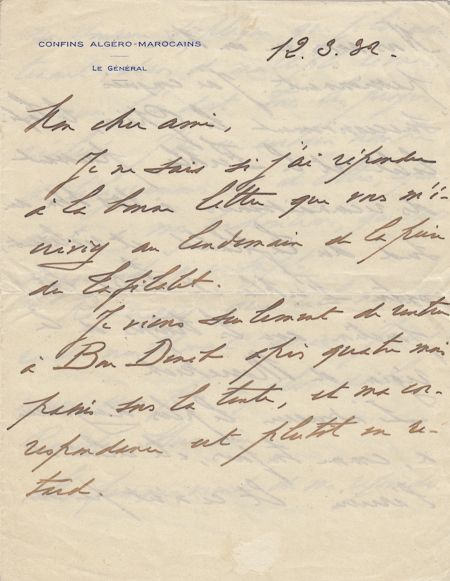 CONFINS ALGÉRO-MAROCAINS
LE GÉNÉRAL
12.3.32.
Mon cher ami,
Je ne sais si j'ai répondu
à la bonne lettre que vous m'é-
criviez au lendemain de la prise
du Tafilalet.
Je viens seulement de rentrer
à Bou Denib après quatre mois
passés sous la tente, et ma cor-
respondance est plutôt en re-
tard.